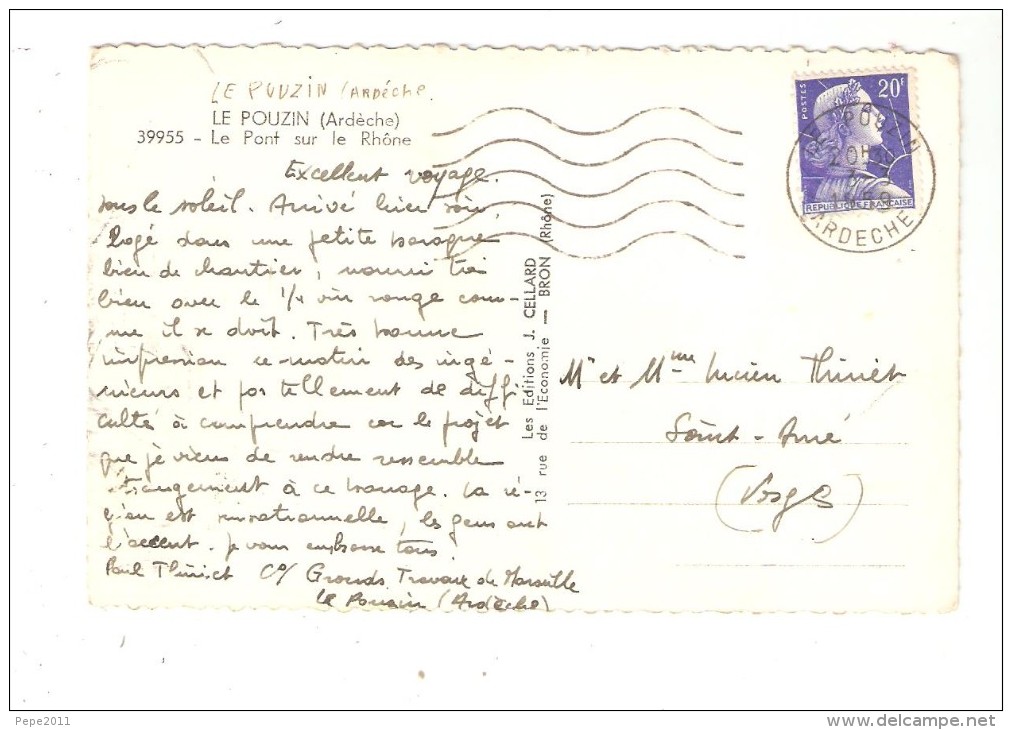 LE POUZIN (Ardèche.
LE POUZIN (Ardèche)
39955 - Le Pont sur le Rhône
Excellent voyage.
sous le soleil. Arrivé hier soir,
logé dans une petite baraque
bien de chantier, nourri très
bien avec le 1/4 vin rouge com-
me il se doit. Très bonne
impression ce matin des ingé-
nieurs et pas tellement de diffi
cultés à comprendre car le projet
que je viens de rendre ressemble
étrangement à ce barrage. La ré-
gion est, les gens ont
l'accent. Je vous embrasse tous.
Paul Thiriet C/o Grands Travaux de Marseille
Le Pouzin (Ardèche)
Les Editions J. CELLARD
13 rue de l'Economie — BRON (Rhône)
POSTES
20F
REPUBLIQUE FRANCAISE
LE POUZIN
20H30
ARDECHE
Mr et Mme Lucien Thiriet
Saint-Amé
(Vosges)
Pepe2011
www.delcampe.net